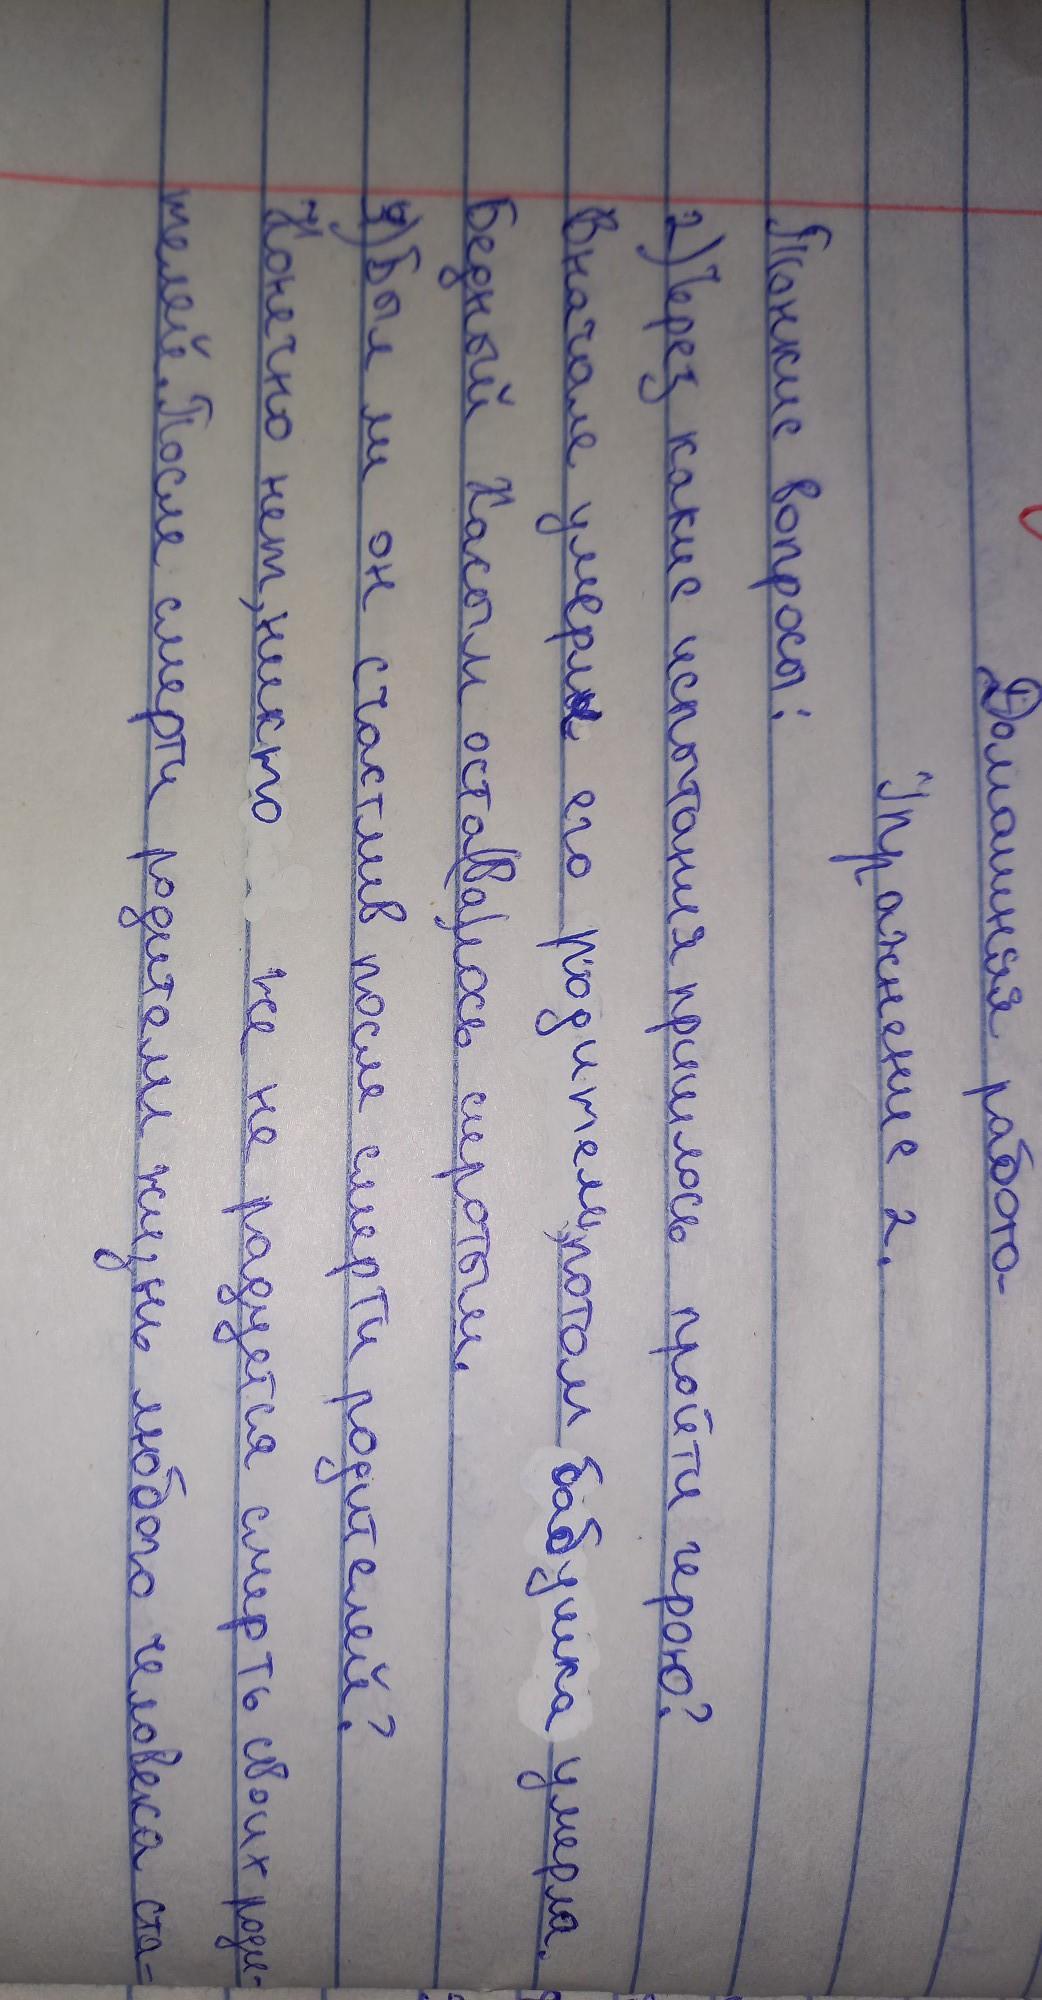 Домашняя работа.
Упражнение 2.
Тонкие вопросы:
2) Через какие испытания пришлось пройти герою?
Вначале умерли его родители, потом бабушка умерла.
Бедный Касым оста(ва)лось сиротым.
4) Был ли он счастлив после смерти родителей?
Конечно нет, никто же не радуется смерть своих роди-
телей. После смерти родители жизнь любого человека ста-